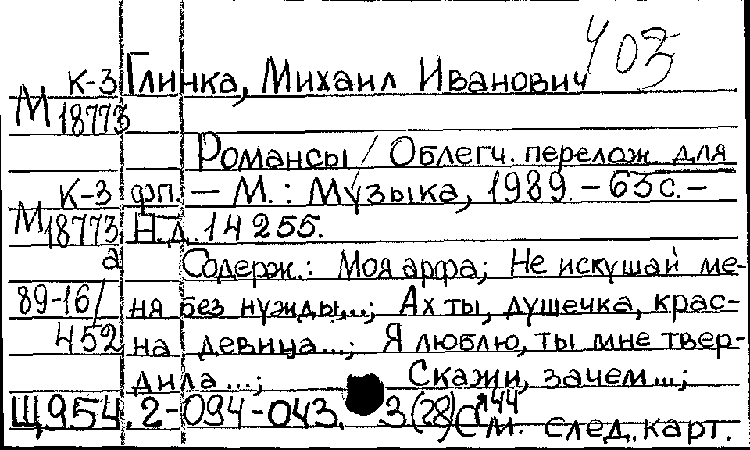 403
К-3 Глинка, Михаил Иванович
М 18773
Романсы / Облегч. перелож для
К-3 фп. – М.: Музыка, 1989. – 63 с. –
М 18773 Н.д. 14255.
а Содерж.: Моя арфа; Не искушай ме-
89-16/ ня без нужды...; Ах ты, душечка, крас-
452 на девица...; Я люблю, ты мне твер-
дила...; Скажи, зачем...;
Щ954.2-094-043. 3(28) 44
См. след. карт.